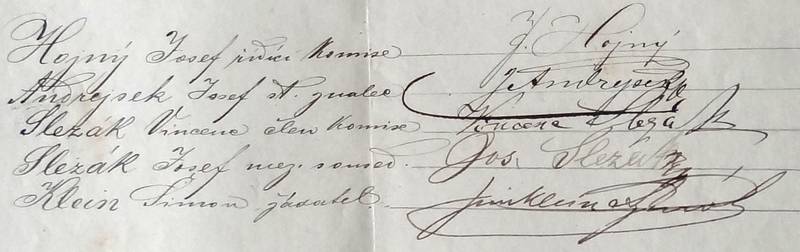 Hojný Josef řídící komise J. Hojný
Andrejsek Josef st. znalec J Andrejsek
Slezák Vincenc člen komise Vincenc Slezák
Slezák Josef mez. soused. Jos. Slezák
Klein Šimon žadatel.